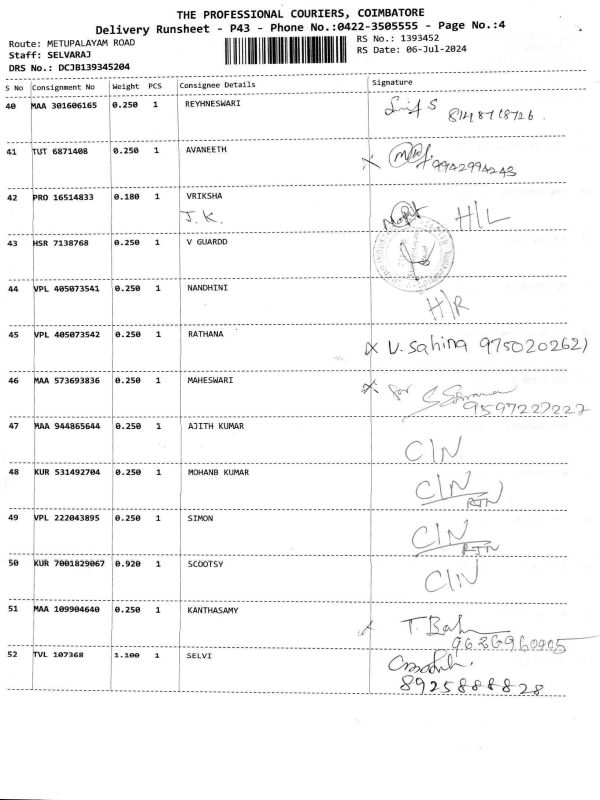 THE PROFESSIONAL COURIERS, COIMBATORE
Delivery Runsheet - P43 - Phone No.:0422-3505555 - Page No.:4
Route: METUPALAYAM ROAD RS No.: 1393452
Staff: SELVARAJ RS Date: 06-Jul-2024
DRS No.: DCJB139345204
S No Consignment No Weight PCS Consignee Details Signature
40 MAA 301606165 0.250 1 REYHNESWARI
41 TUT 6871408 0.250 1 AVANEETH
9942994243
42 PRO 16514833 0.180 1 VRIKSHA
J.K. H/L
43 HSR 7138768 0.250 1 V GUARDD
44 VPL 405073541 0.250 1 NANDHINI
H/R
45 VPL 405073542 0.250 1 RATHANA
x V. Sahina 9750202621
46 MAA 573693836 0.250 1 MAHESWARI
x for
9597227227
47 MAA 944865644 0.250 1 AJITH KUMAR
C/N
48 KUR 531492704 0.250 1 MOHANB KUMAR
C/N
RTN
49 VPL 222043895 0.250 1 SIMON
C/N
RTN
50 KUR 7001829067 0.920 1 SCOOTSY
C/N
51 MAA 109904640 0.250 1 KANTHASAMY
52 TVL 107368 1.100 1 SELVI
8925888828